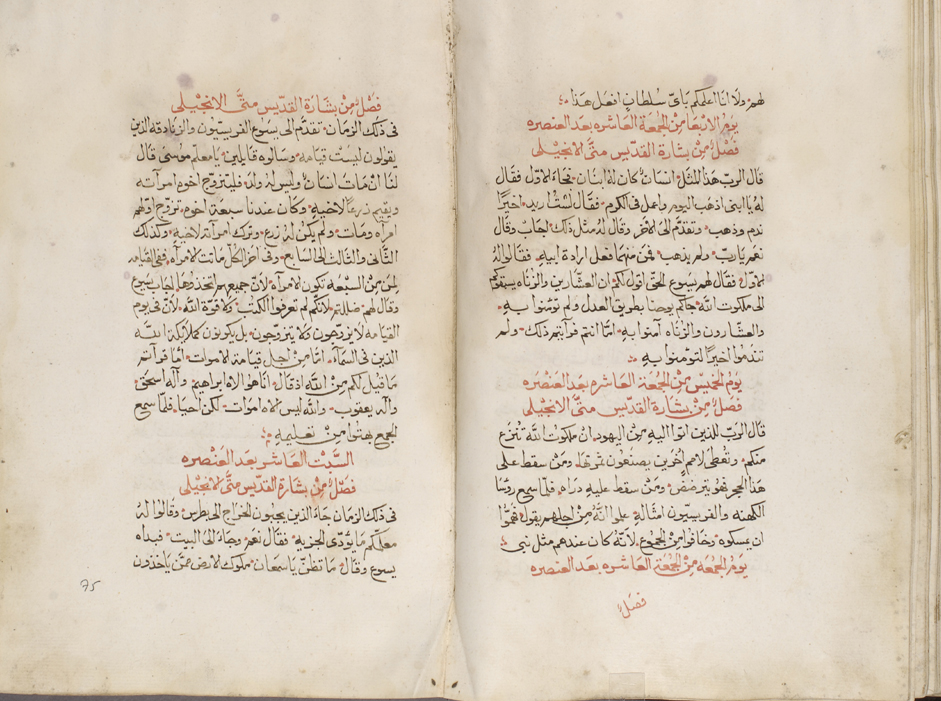 لهم ولا انا اعلمكم باىّ سلطانٍ افعل هذا
يوم الاربعا من الجمعة العاشره بعد العنصره
فصلٌ من بشارة القديس متىَّ الانجيلى
قال الرب هذا المثل انسانٌ كان له ابنان فجاءَ الاول فقال
له يا ابنى اذهب اليوم واعمل فى الكرم فقال لستُ اريد اخيرًا
ندم وذهب وتقدم الى الاخر وقال له مثل ذلك اجاب وقال
نعم يا ربّ ولم يذهب فمن منهما فعل ارادة ابيه فقالوا له
الاوّل فقال لهم يسوع الحقّ اقول لكم ان العشّارين والزناه يسبقوكم
الى ملكوت اللّه جاكم يوحنا بطريق العدل ولم تومنوا به
والعشّارون والزناه آمنوا به امّا انتم فرآيتم ذلك ولم
تندموا اخيرًا لتومنوا به
يوم الخميس من الجمعة العاشره بعد العنصره
فصلٌ من بشارة القديس متىَّ الانجيلى
قال الربّ للذين اتوا اليه من اليهود ان ملكوت اللّه تُنزع
منكم وتُعطى لامم اُخرين يصنعون ثمرتها ومن سقط على
هذا الحجر فهو يترضض ومن سقط عليه ذراه فلمّا سمع روسا
الكهنه والفريسيّون امثاله علموا انّهُ من اجلهم يقول فهمّوا
ان يمسكوه وخافوا من الجموع لانّه كان عندهم مثل نبى
يوم الجمعه من الجمعة العاشره بعد العنصره
فصلٌ
فصلٌ من بشارة القديس متىَّ الانجيلى
فى ذلك الزمان تقدّم الى يسوع الفريسيّون والزنادقه الذين
يقولون ليست قيامه وسالوه قايلين يا معلّم موسى قال
لنا ان مات انسانٌ وليس له ولد فليتزوّج اخوه امرآته
ويقيم زرعًا لاخيه وكان عندنا سبعة اخوه تزوّج اوّلهم
امرآه ومات ولم يكن له زرع وترك امرآته لاخيه وكذلك
الثّانى والثالث الى السابع وفى آخر الكلّ ماتت الامرآه ففى القيامه
لمن من السبعه تكون الامرآه لانّ جميعهم اتخذوها اجاب يسوع
وقال لهم ضللتم لانّكم لم تعرفوا الكتب ولا قوّة اللّه لانّ فى يوم
القيامه لا يزوّجون ولا يتزوّجون بل يكونون كملايكة اللّه
الذين فى السّمآء امّا من اجل قيامة الاموات امّا قرآتم
ما قيل لكم من اللّه اذ قال انا هو الاه ابراهيم وآله اسحق
وآله يعقوب واللّه ليس الاه اموات لكن احيا فلمّا سمع
الجمع بهتوا من تعليمه
السّبت العاشر بعد العنصره
فصلٌ من بشارة القديس متىَّ الانجيلى
فى ذلك الزمان جاءَ الذين يجبون الخراج الى بطرس وقالوا له
معلّمكم ما يُؤدّى الجزيه فقال نعم وجاءَ الى البيت فبداه
يسوع وقال ما تظنّ يا سمعان ملوك الارض ممّن ياخذون
75